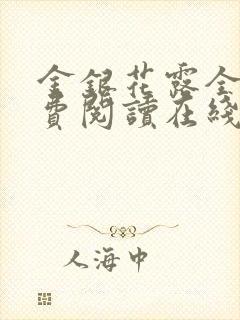 金銀花露全
費閱讀在綫
人海中